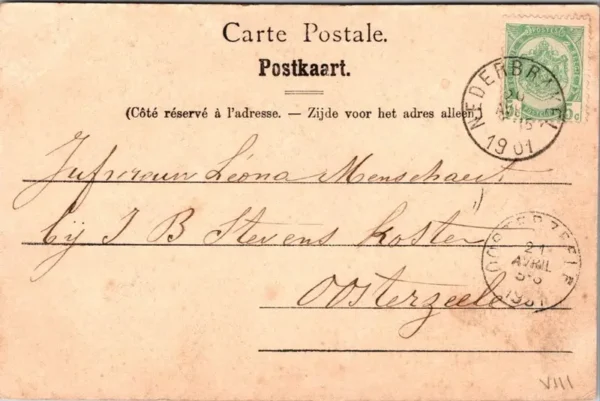 Carte Postale.
Postkaart.
(Côté réservé à l'adresse. — Zijde voor het adres alleen.)
NEDERBRAKEL
1901
Jufvrouw Léona Menschaert
bij J B Stevens koster
Oosterzeele
OOSTERZEELE
21
AVRIL
1901
VIII